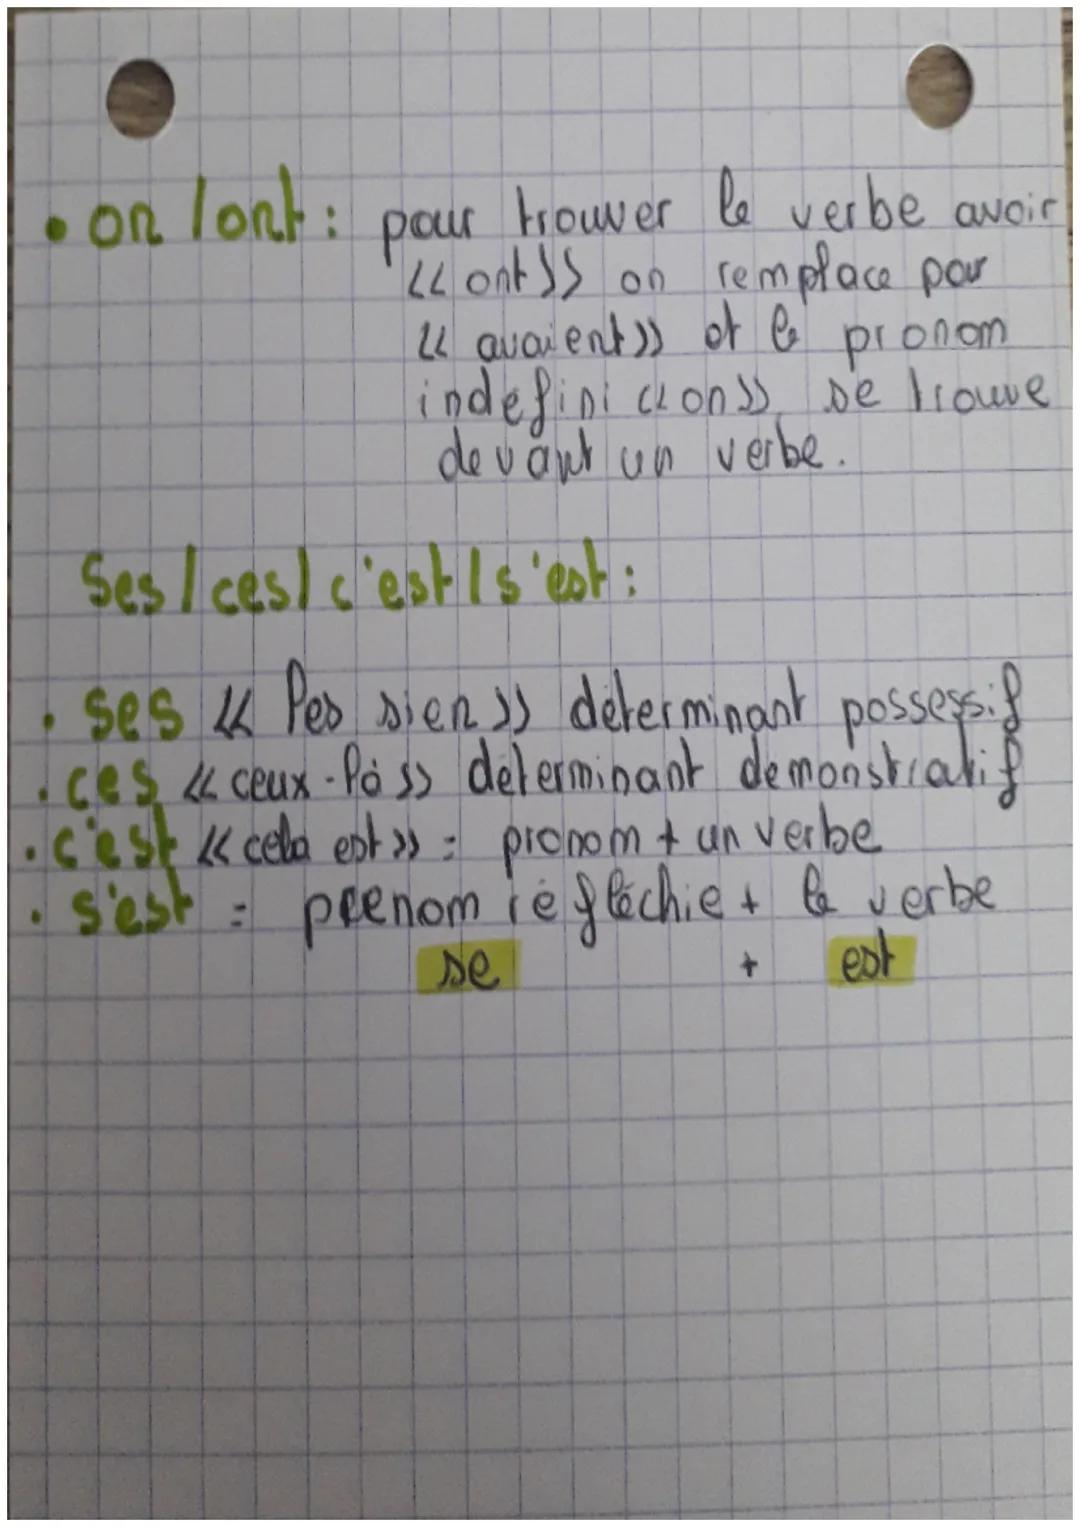 • on / ont : pour trouver le verbe avoir
<< ont >> on remplace par
<< avaient >> et le pronom
indefini << on >> se trouve
devant un verbe.
Ses / ces / c'est / s'est :
• ses << les sien >> déterminant possessif
• ces << ceux-là >> déterminant demonstratif
• c'est << cela est >> = pronom + un verbe
• s'est = prenom réfléchie + le verbe
se + est